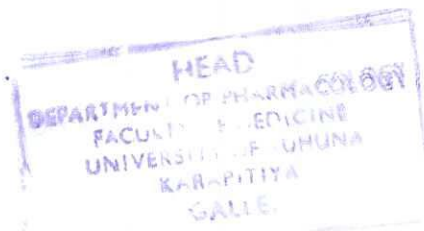 HEAD
DEPARTMENT OF PHARMACOLOGY
FACULTY OF MEDICINE
UNIVERSITY OF RUHUNA
KARAPITIYA
GALLE.